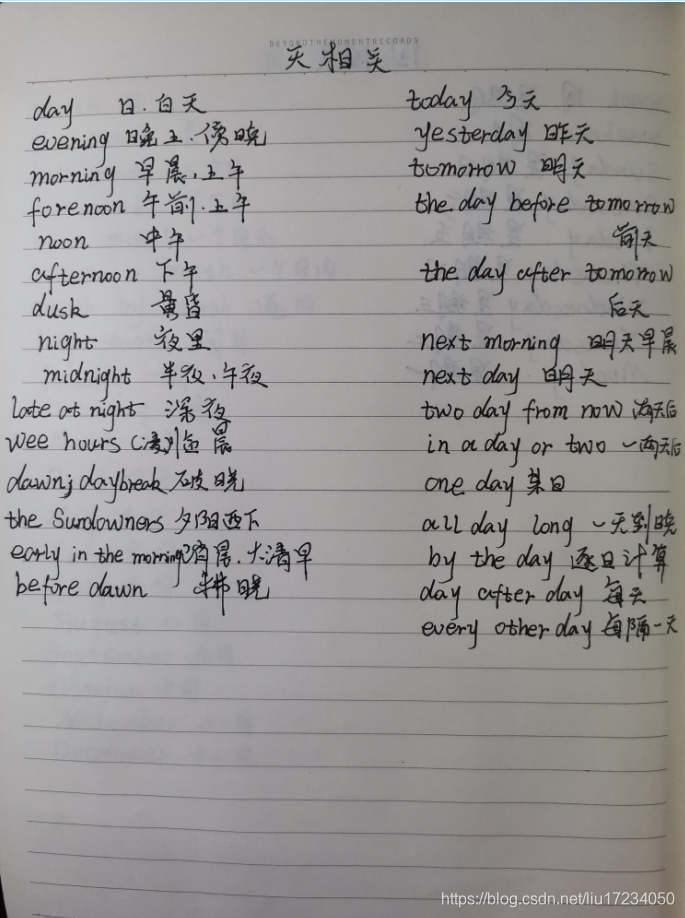 BEYONDTHEMOMENTRECORDS
天相关
day 日.白天
evening 晚上.傍晚
morning 早晨.上午
forenoon 午前.上午
noon 中午
afternoon 下午
dusk 黄昏
night 夜里
midnight 半夜.午夜
late at night 深夜
wee hours (凌)晨
dawn; daybreak 破晓
the Sundowners 夕阳西下
early in the morning 清晨.大清早
before dawn 拂晓
today 今天
yesterday 昨天
tomorrow 明天
the day before tomorrow
前天
the day after tomorrow
后天
next morning 明天早晨
next day 明天
two day from now 两天后
in a day or two 一两天后
one day 某日
all day long 一天到晚
by the day 逐日计算
day after day 每天
every other day 每隔一天
https://blog.csdn.net/liu17234050